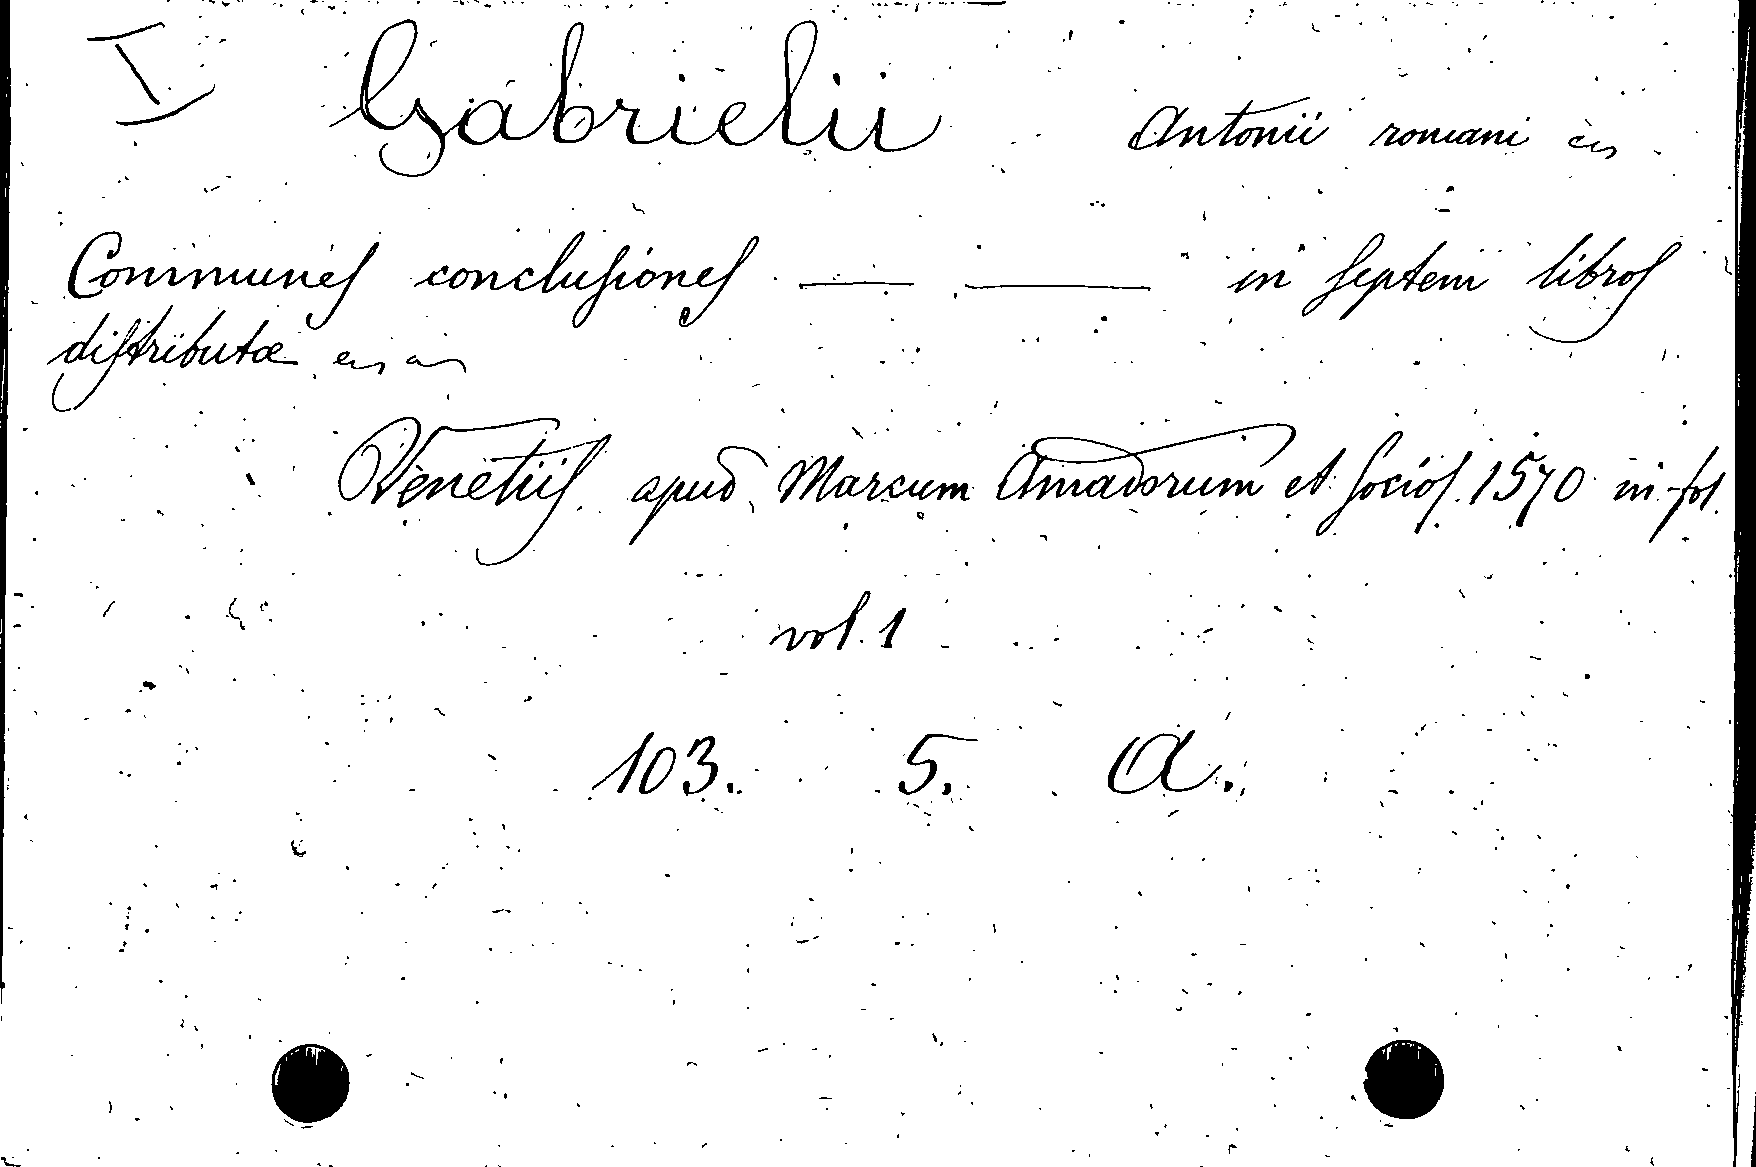 I Gabrielii Antonii romani
Communes conclusiones — — in septem libros
distributæ
Venetiis apud Marcum Amadorum et socios. 1570 in-fol.
vol. 1
103. 5. A.